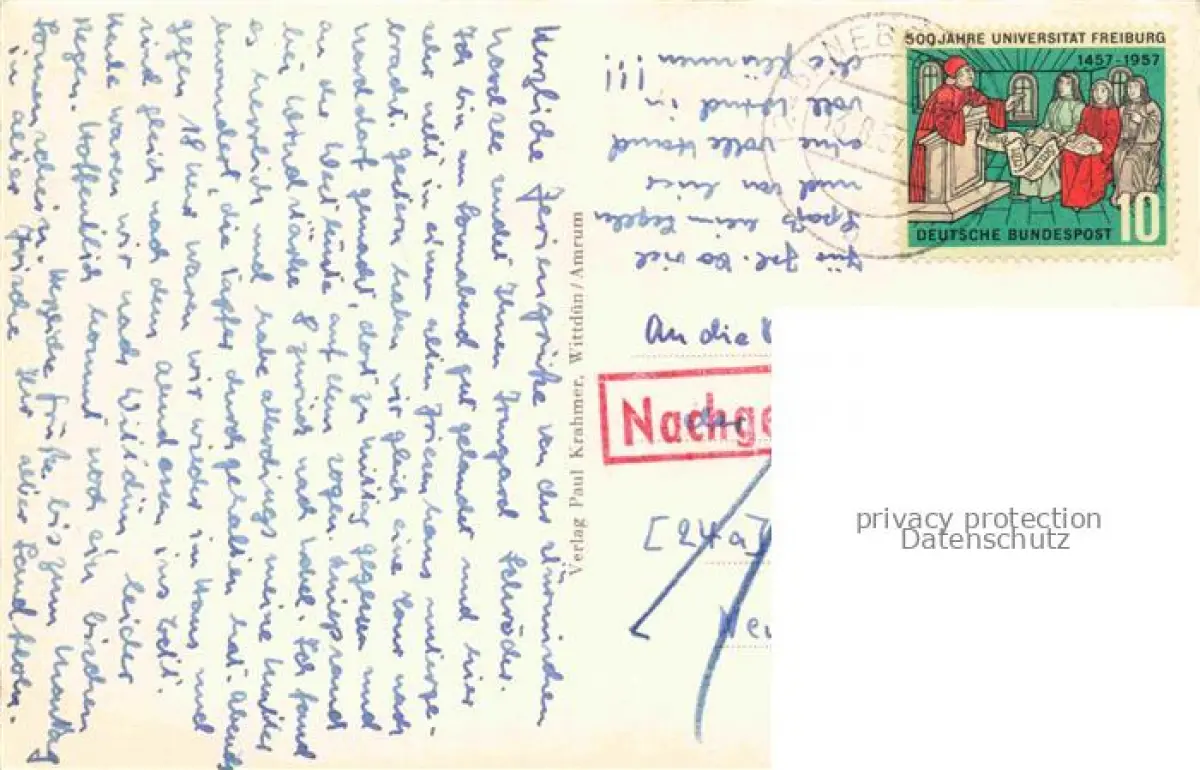 Herzliche Feriengrüße von der stürmischen
Nordsee sendet Ihnen Irmgard Schröder.
Ich bin am Sonnabend gut gelandet und hier
sehr nett in einem alten Friesenhaus unterge-
bracht. Gestern haben wir gleich eine Tour nach
Norddorf gemacht, dort zu Mittag gegessen und
an der Westküste auf dem sogen. Kniepsand
bei Windstärke 8 zurück nach Nebel. Ich fand
es herrlich und habe allerdings meine Mutter
bewundert, die tapfer durchgehalten hat. Abends
gegen 18 Uhr waren wir wieder im Haus und
sind gleich nach dem Abendessen ins Bett.
Heute waren wir nach Wittdün, leider
Regen. Hoffentlich kommt noch ein bischen
Sonnenschein. Herzliche Grüße bis zum Montag
in alter Frische Ihr alter
Für Frl. so viel
Spaß beim Segeln
und von hier
eine volle Hand
voll Wind in
die
!!!
Verlag Paul Krahmer, Wittdün/Amrum
500 JAHRE UNIVERSITÄT FREIBURG
1457-1957
DEUTSCHE BUNDESPOST 10
NEB
An die
Nachg
der
[24a]
privacy protection
Datenschutz